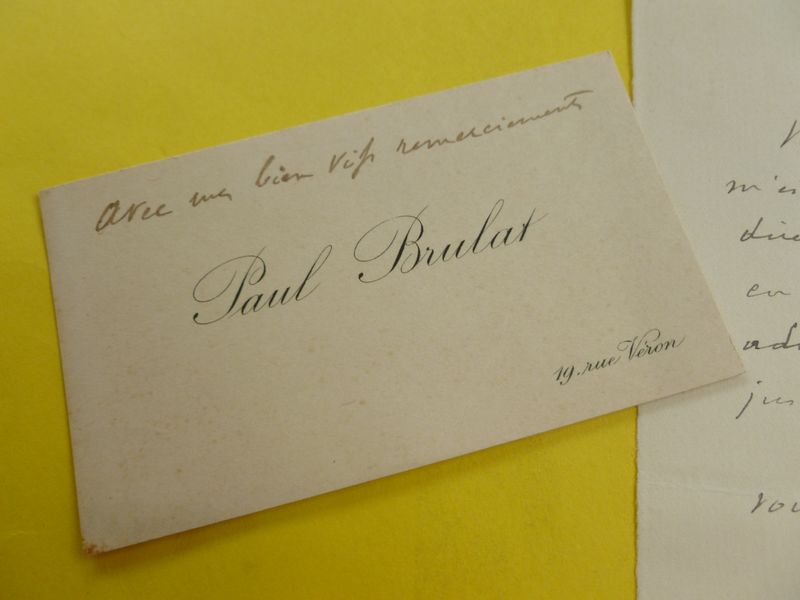 avec mes bien vifs remerciements
Paul Brulat
19. rue Véron
m'es
dire
en
jus
vou